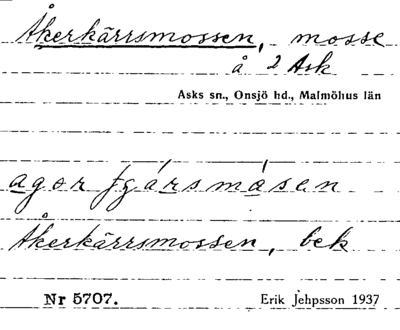 Åkerkärrsmossen, mosse
å 2 Ask
Asks sn., Onsjö hd., Malmöhus län
agor
Åkerkärrsmossen, bek
Nr 5707. Erik Jehpsson 1937